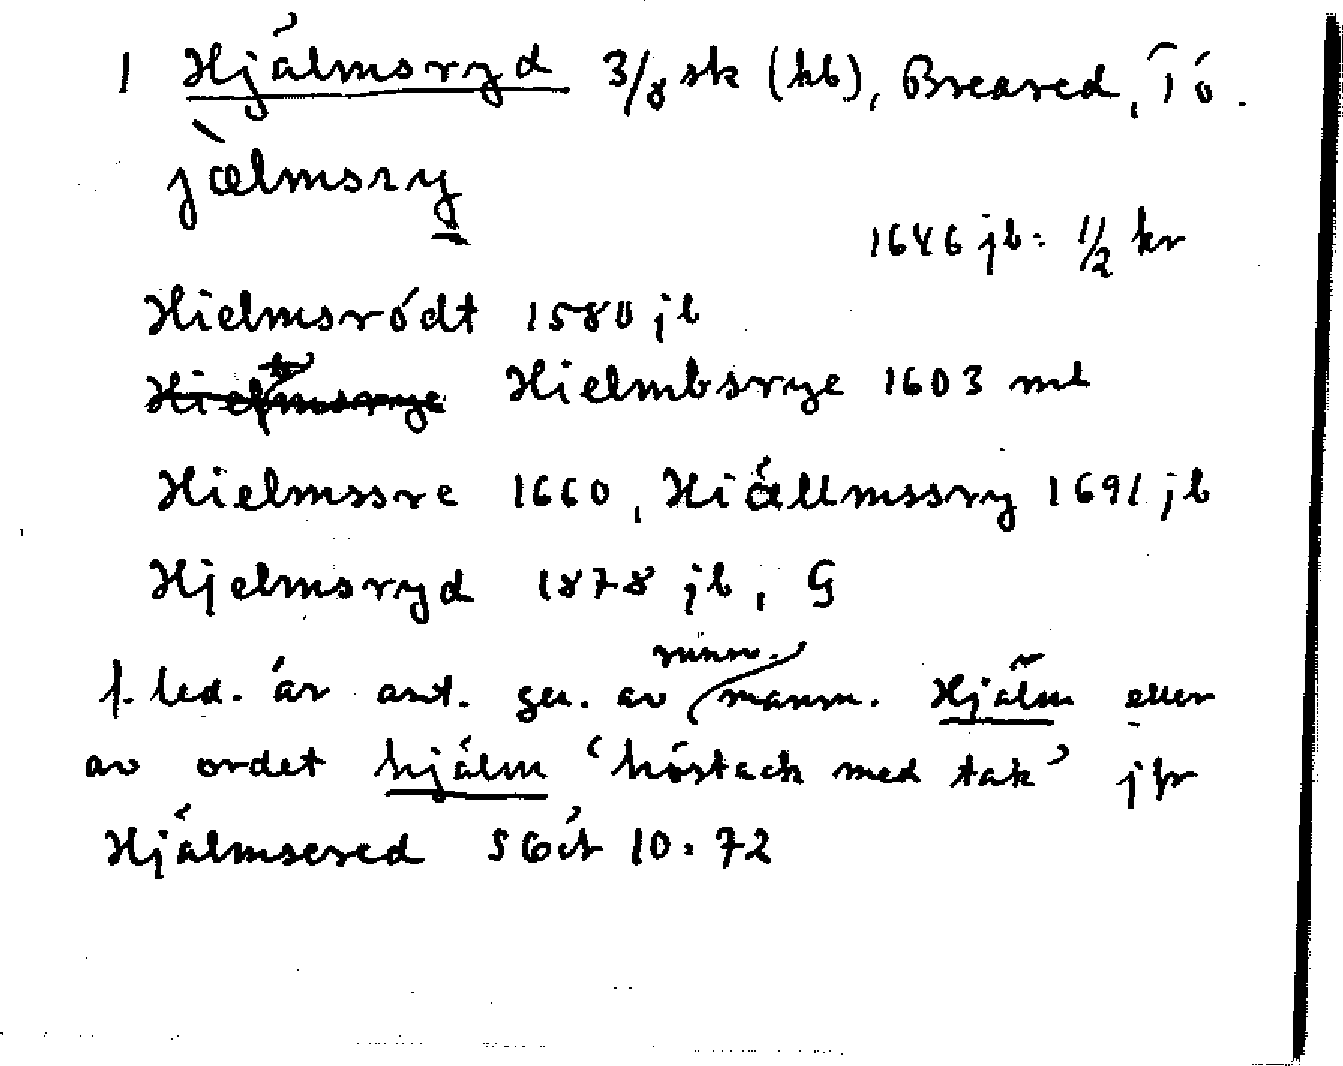 1 Hjälmsryd 3/8 sk (hb), Breared, Tö.
jælmsry
1646 jb: 1/2 kr
Hielmsrödt 1580 jb
Hielmsrye Hielmbsrye 1603 ml
Hielmssre 1660, Hiällmssry 1691 jb
Hjelmsryd 1878 jb, G
runsv.
f. led. är ant. gen. av mansn. Hjälm eller
av ordet hjälm 'höstack med tak' jfr
Hjälmsered SOÄ 10:72